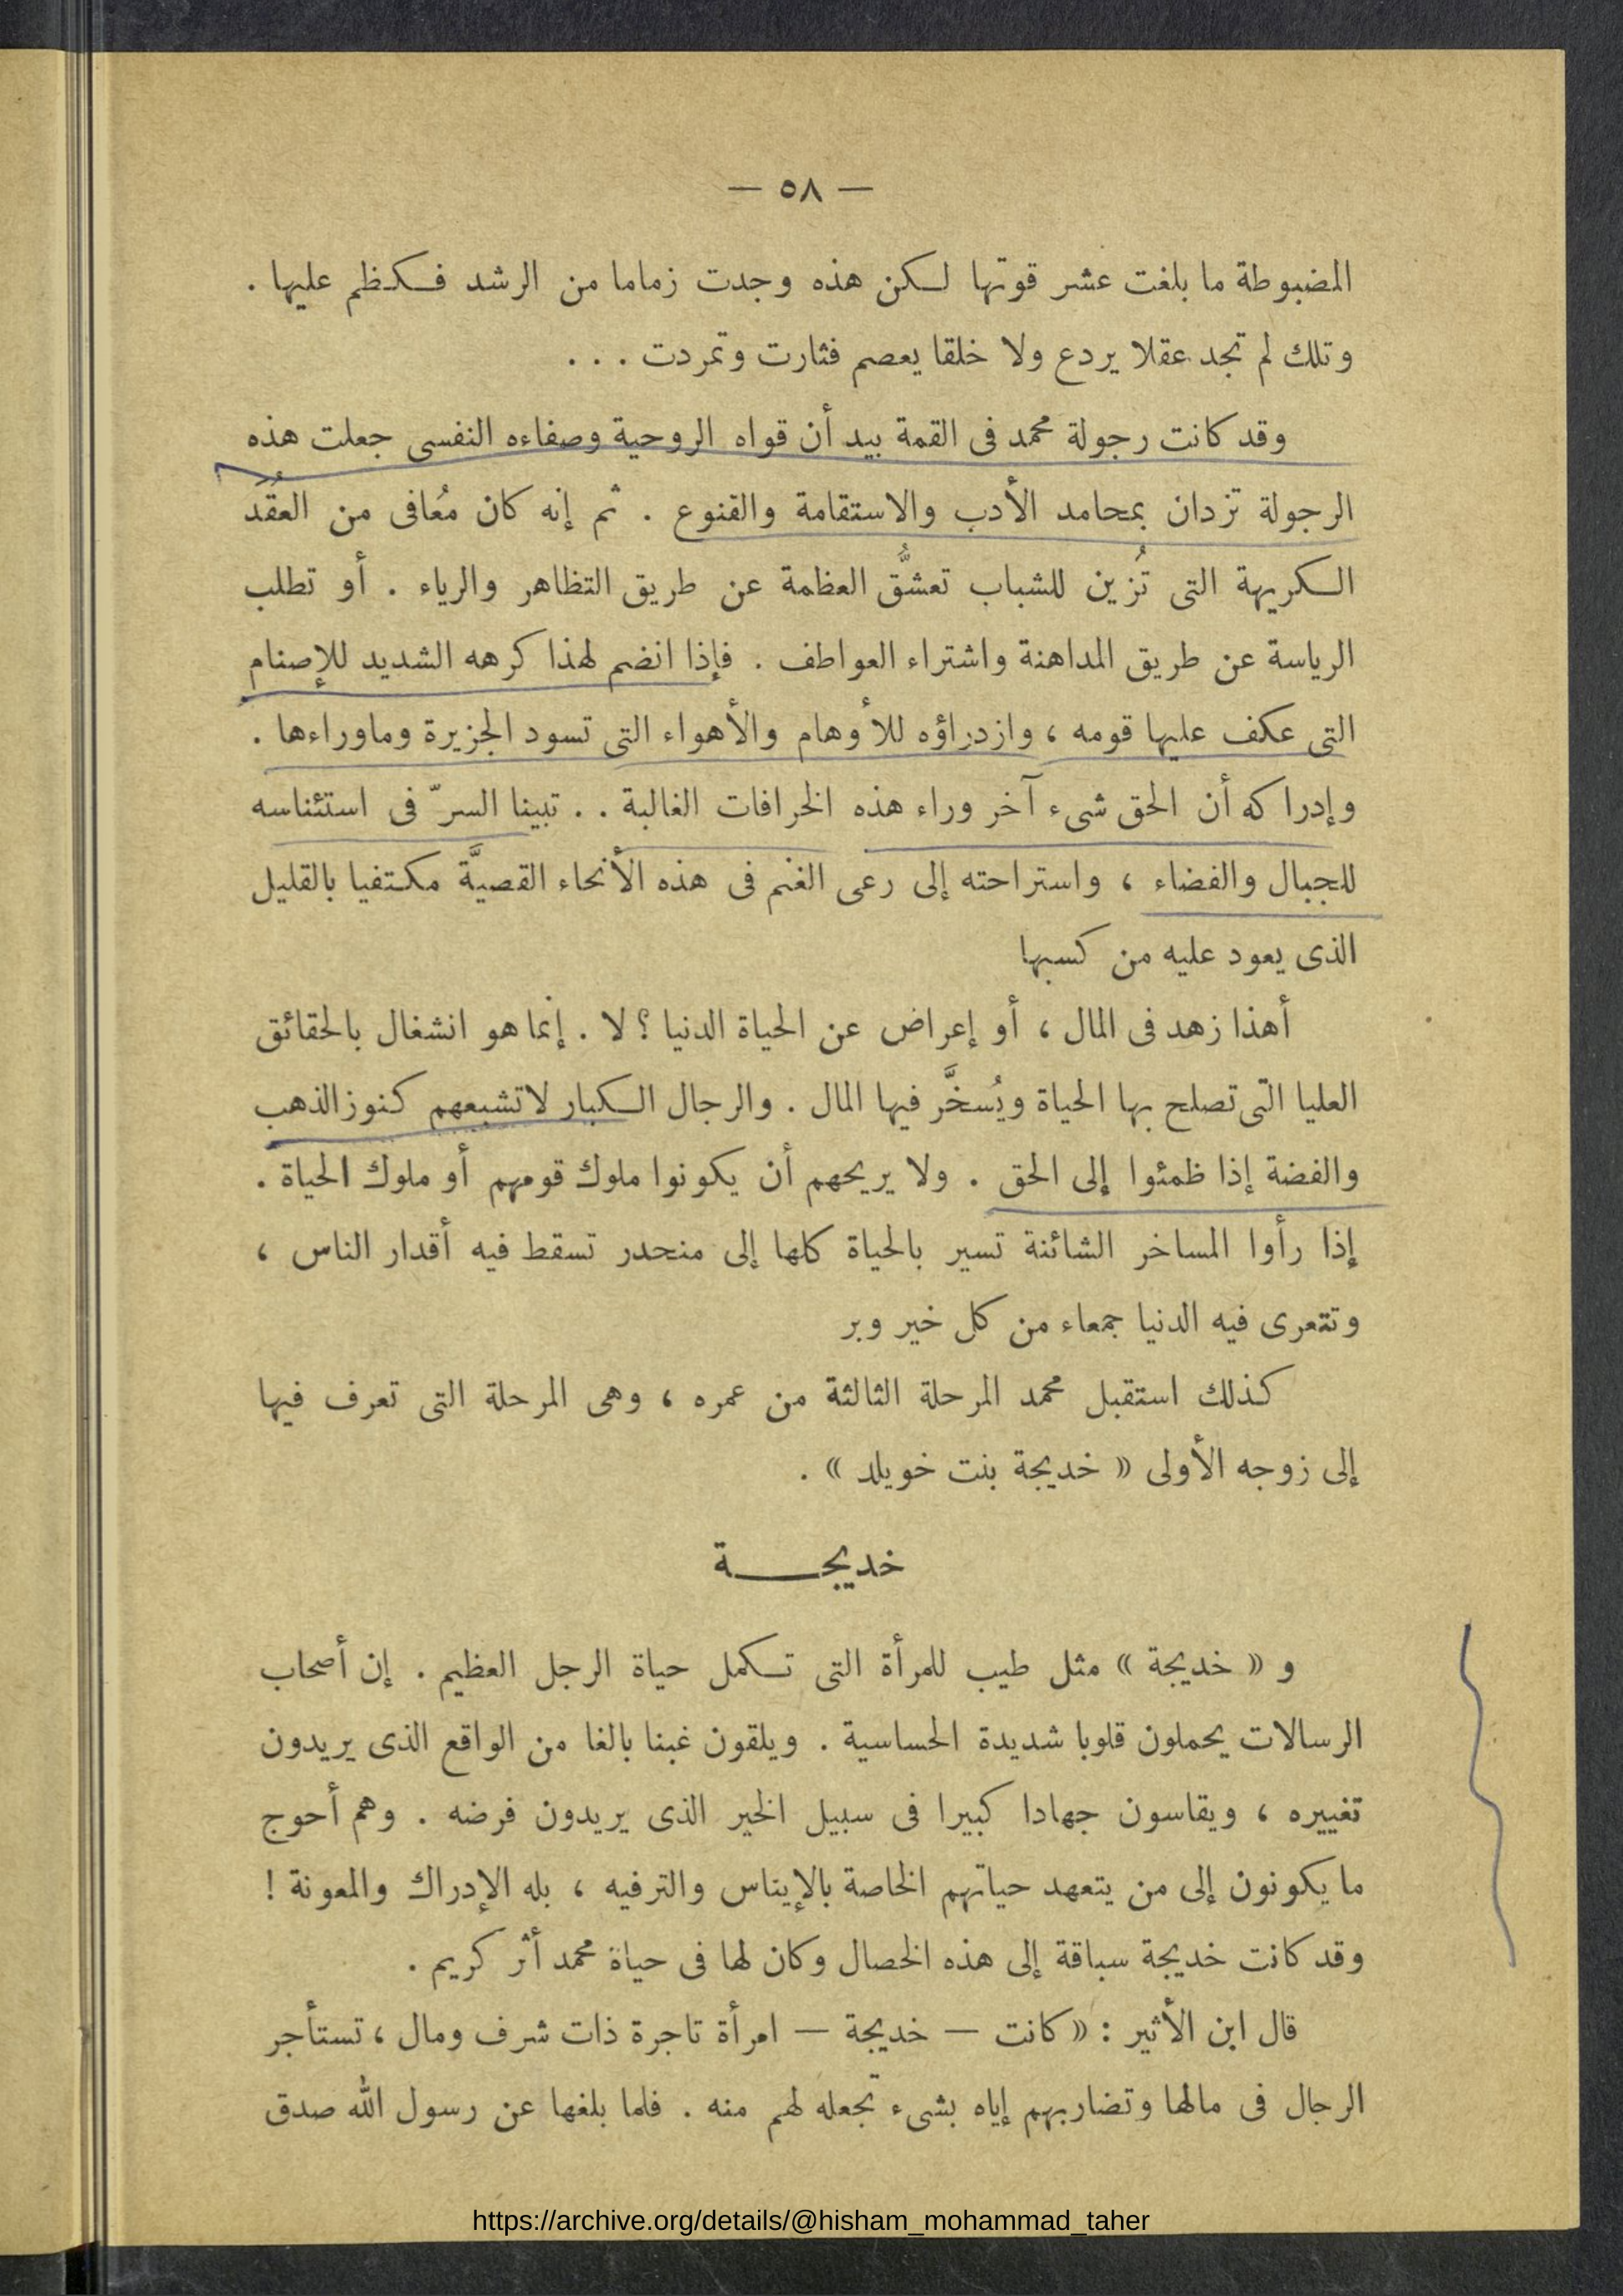 — ٥٨ —
المضبوطة ما بلغت عشر قوتها لكن هذه وجدت زماما من الرشد فكظم عليها .
وتلك لم تجد عقلا يردع ولا خلقا يعصم فثارت وتمردت . . .
وقد كانت رجولة محمد فى القمة بيد أن قواه الروحية وصفاءه النفسى جعلت هذه
الرجولة تزدان بمحامد الأدب والاستقامة والقنوع . ثم إنه كان مُعافى من العُقَد
الكريهة التى تُزين للشباب تعشُّق العظمة عن طريق التظاهر والرياء . أو تطلب
الرياسة عن طريق المداهنة واشتراء العواطف . فإذا انضم لهذا كرهه الشديد للإصنام
التى عكف عليها قومه ، وازدراؤه للأوهام والأهواء التى تسود الجزيرة وماوراءها .
وإدراكه أن الحق شىء آخر وراء هذه الخرافات الغالبة . . تبينا السرّ فى استئناسه
للجبال والفضاء ، واستراحته إلى رعى الغنم فى هذه الأنحاء القصيَّة مكتفيا بالقليل
الذى يعود عليه من كسبها
أهذا زهد فى المال ، أو إعراض عن الحياة الدنيا ؟ لا . إنما هو انشغال بالحقائق
العليا التى تصلح بها الحياة ويُسخَّر فيها المال . والرجال الكبار لاتشبعهم كنوز الذهب
والفضة إذا ظمئوا إلى الحق . ولا يريحهم أن يكونوا ملوك قومهم أو ملوك الحياة .
إذا رأوا المساخر الشائنة تسير بالحياة كلها إلى منحدر تسقط فيه أقدار الناس ،
وتتعرى فيه الدنيا جمعاء من كل خير وبر
كذلك استقبل محمد المرحلة الثالثة من عمره ، وهى المرحلة التى تعرف فيها
إلى زوجه الأولى « خديجة بنت خويلد » .
خديجــــة
و « خديجة » مثل طيب للمرأة التى تكمل حياة الرجل العظيم . إن أصحاب
الرسالات يحملون قلوبا شديدة الحساسية . ويلقون غبنا بالغا من الواقع الذى يريدون
تغييره ، ويقاسون جهادا كبيرا فى سبيل الخير الذى يريدون فرضه . وهم أحوج
ما يكونون إلى من يتعهد حياتهم الخاصة بالإيناس والترفيه ، بله الإدراك والمعونة !
وقد كانت خديجة سباقة إلى هذه الخصال وكان لها فى حياة محمد أثر كريم .
قال ابن الأثير : « كانت — خديجة — امرأة تاجرة ذات شرف ومال ، تستأجر
الرجال فى مالها وتضاربهم إياه بشىء تجعله لهم منه . فلما بلغها عن رسول الله صدق
https://archive.org/details/@hisham_mohammad_taher